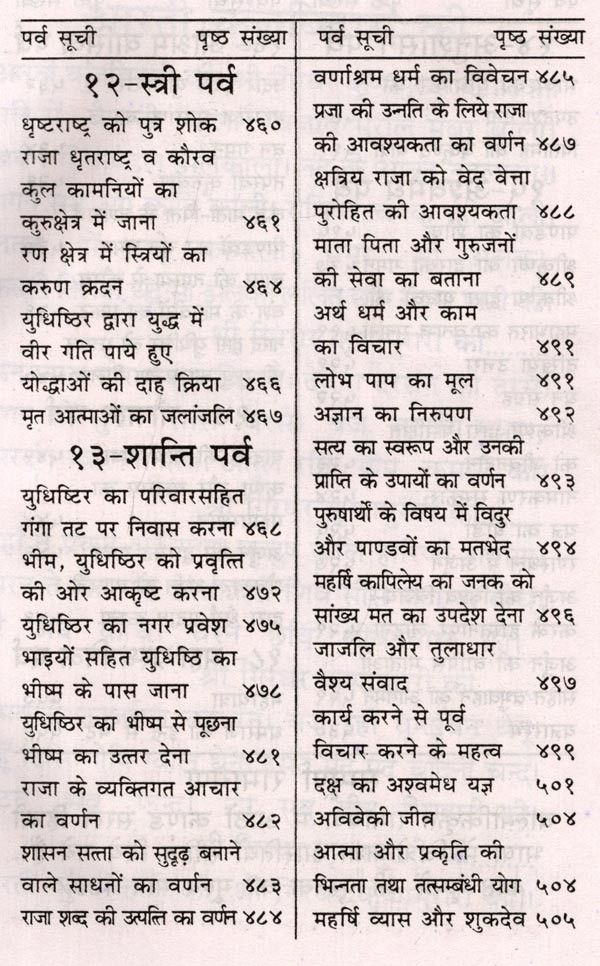 पर्व सूची पृष्ठ संख्या
१२-स्त्री पर्व
धृष्टराष्ट्र को पुत्र शोक ४६०
राजा धृतराष्ट्र व कौरव
कुल कामनियों का
कुरुक्षेत्र में जाना ४६१
रण क्षेत्र में स्त्रियों का
करुण क्रदन ४६४
युधिष्ठिर द्वारा युद्ध में
वीर गति पाये हुए
योद्धाओं की दाह क्रिया ४६६
मृत आत्माओं का जलांजलि ४६७
१३-शान्ति पर्व
युधिष्टिर का परिवारसहित
गंगा तट पर निवास करना ४६८
भीम, युधिष्ठिर को प्रवृत्ति
की ओर आकृष्ट करना ४७२
युधिष्ठिर का नगर प्रवेश ४७५
भाइयों सहित युधिष्ठि का
भीष्म के पास जाना ४७८
युधिष्ठिर का भीष्म से पूछना
भीष्म का उत्तर देना ४८१
राजा के व्यक्तिगत आचार
का वर्णन ४८२
शासन सत्ता को सुदृढ़ बनाने
वाले साधनों का वर्णन ४८३
राजा शब्द की उत्पत्ति का वर्णन ४८४
पर्व सूची पृष्ठ संख्या
वर्णाश्रम धर्म का विवेचन ४८५
प्रजा की उन्नति के लिये राजा
की आवश्यकता का वर्णन ४८७
क्षत्रिय राजा को वेद वेत्ता
पुरोहित की आवश्यकता ४८८
माता पिता और गुरुजनों
की सेवा का बताना ४८९
अर्थ धर्म और काम
का विचार ४९१
लोभ पाप का मूल ४९१
अज्ञान का निरुपण ४९२
सत्य का स्वरूप और उनकी
प्राप्ति के उपायों का वर्णन ४९३
पुरुषार्थों के विषय में विदुर
और पाण्डवों का मतभेद ४९४
महर्षि कापिलेय का जनक को
सांख्य मत का उपदेश देना ४९६
जाजलि और तुलाधार
वैश्य संवाद ४९७
कार्य करने से पूर्व
विचार करने के महत्व ४९९
दक्ष का अश्वमेध यज्ञ ५०१
अविवेकी जीव ५०४
आत्मा और प्रकृति की
भिन्नता तथा तत्सम्बंधी योग ५०४
महर्षि व्यास और शुकदेव ५०५